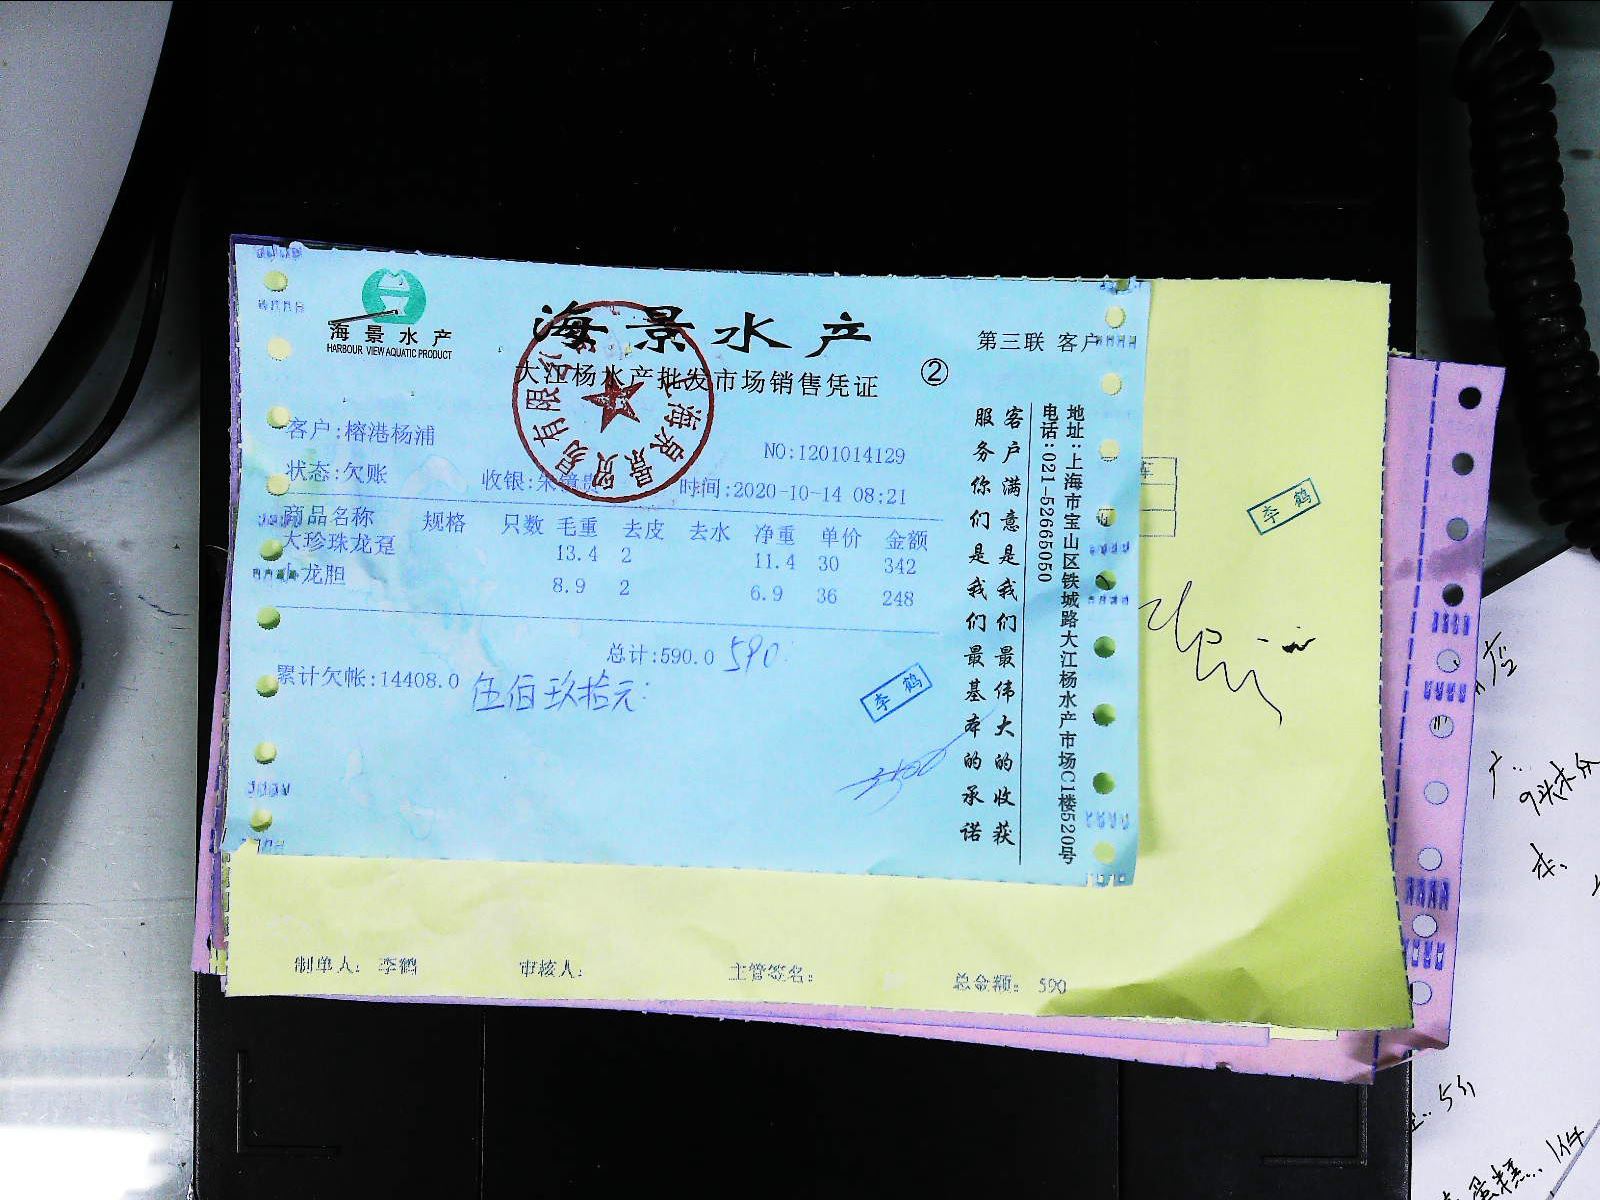 海景水产
HARBOUR VIEW AQUATIC PRODUCT
海景水产
第三联 客户
大江杨水产批发市场销售凭证 ②
客户:榕港杨浦
NO:1201014129
状态:欠账 收银:朱 时间:2020-10-14 08:21
商品名称 规格 只数 毛重 去皮 去水 净重 单价 金额
大珍珠龙趸 13.4 2 11.4 30 342
小龙胆 8.9 2 6.9 36 248
总计:590.0 590
累计欠帐:14408.0 伍佰玖拾元
李鹤
客户满意是我们最伟大的收获
服务你们是我们最基本的承诺
地址:上海市宝山区铁城路大江杨水产市场C1楼520号
电话:021-52665050
海景贸易有限公
李鹤
制单人: 李鹤 审核人: 主管签名: 总金额: 590